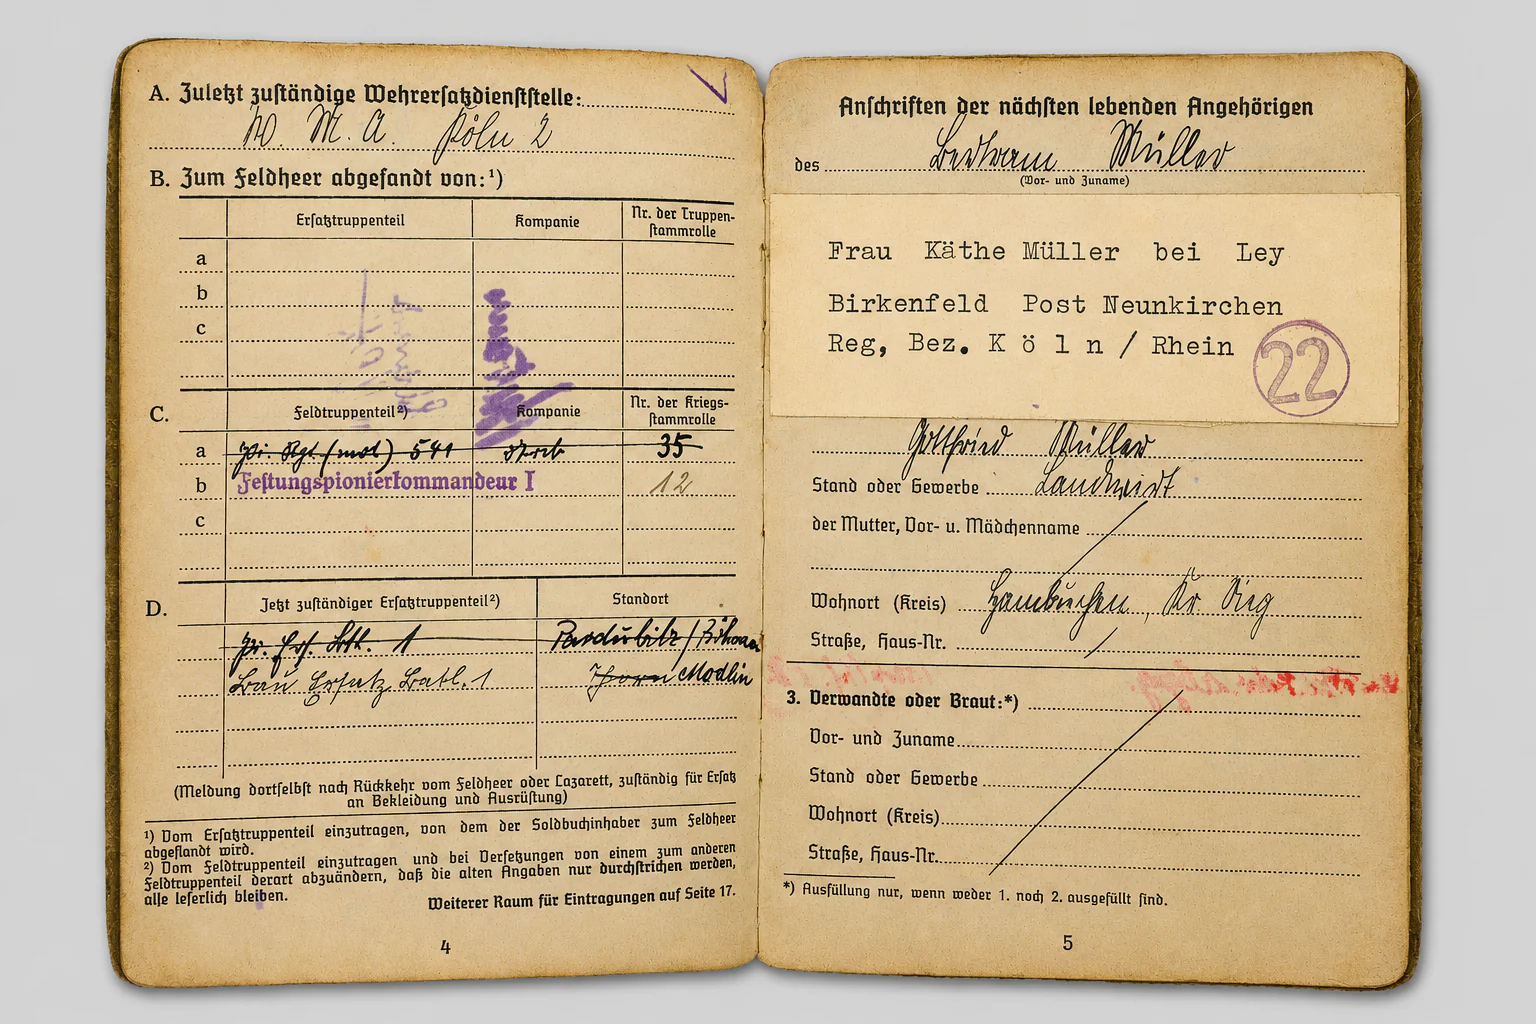 A. Zuletzt zuständige Wehrersatzdienststelle:
W. M. A. Köln 2
B. Zum Feldheer abgesandt von:¹)
Ersatztruppenteil Kompanie Nr. der Truppen-
stammrolle
a
b
c
C. Feldtruppenteil²) Kompanie Nr. der Kriegs-
stammrolle
a Pi. Rgt. (mot) 541 Stab 35
b Festungspionierkommandeur I 12
c
D. Jetzt zuständiger Ersatztruppenteil²) Standort
Pi. Ers. Btl. 1 Pardubitz/Böhmen
Bau Ersatz Batl. 1 Thorn Modlin
(Meldung dortselbst nach Rückkehr vom Feldheer oder Lazarett, zuständig für Ersatz
an Bekleidung und Ausrüstung)
¹) Vom Ersatztruppenteil einzutragen, von dem der Soldbuchinhaber zum Feldheer
abgesandt wird.
²) Vom Feldtruppenteil einzutragen und bei Versetzungen von einem zum anderen
Feldtruppenteil derart abzuändern, daß die alten Angaben nur durchstrichen werden,
also leserlich bleiben.
Weiterer Raum für Eintragungen auf Seite 17.
4
Anschriften der nächsten lebenden Angehörigen
des Bertram Müller
(Vor- und Zuname)
Frau Käthe Müller bei Ley
Birkenfeld Post Neunkirchen
Reg, Bez. K ö l n / Rhein
22
Gottfried Müller
Stand oder Gewerbe Landwirt
der Mutter, Vor- u. Mädchenname
Wohnort (Kreis) Hambuchen, Kr. Sieg
Straße, Haus-Nr.
3. Verwandte oder Braut:*)
Vor- und Zuname
Stand oder Gewerbe
Wohnort (Kreis)
Straße, Haus-Nr.
*) Ausfüllung nur, wenn weder 1. noch 2. ausgefüllt sind.
5